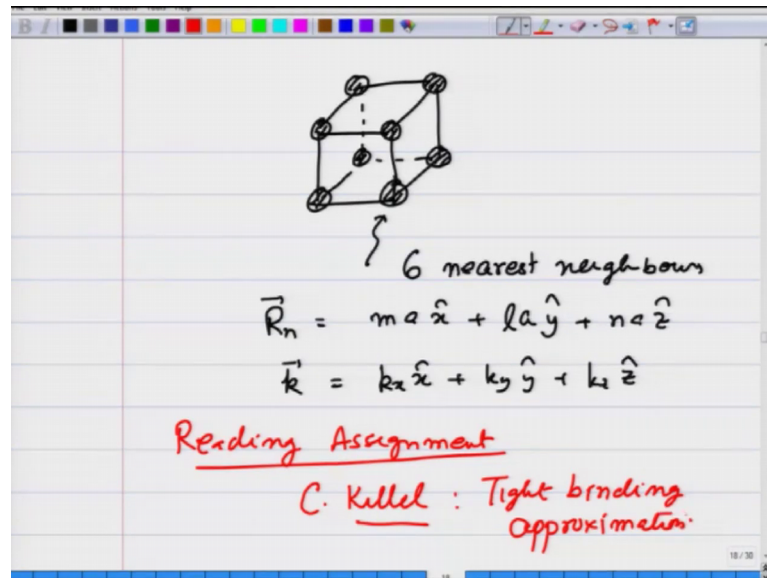 6 nearest neighbours
R⃗n = ma x̂ + la ŷ + na ẑ
k⃗ = kx x̂ + ky ŷ + kz ẑ
Reading Assignment
C. Kittel : Tight binding
approximation.
18 / 30